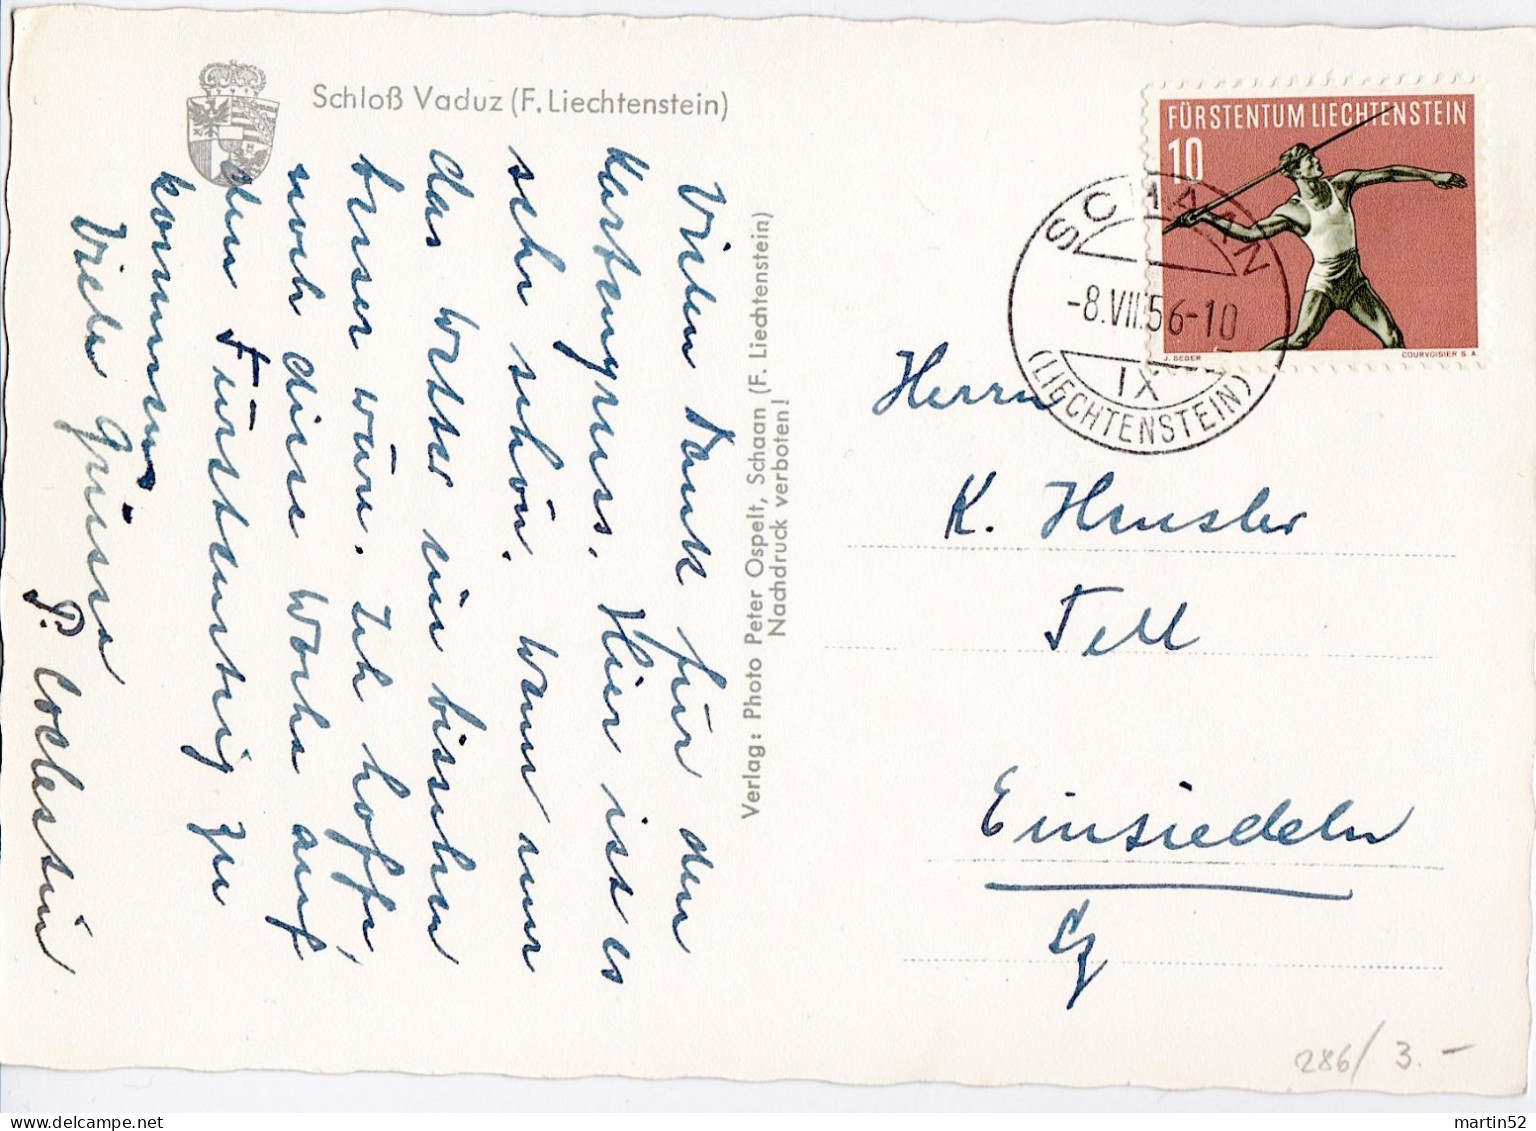 Schloß Vaduz (F. Liechtenstein)
Vielen Dank für den
Kartengruss. Hier ist es
sehr schön. Wenn nur
das Wetter ein bisschen
besser wäre. Ich hoffe
noch diese Woche auf
dem Fürstensteig zu
kommen.
Viele Grüsse
Verlag: Photo Peter Ospelt, Schaan (F. Liechtenstein)
Nachdruck verboten!
FÜRSTENTUM LIECHTENSTEIN
10
J. SEGER
COURVOISIER S.A.
SCHAAN
-8.VII.56-10
IX
(LIECHTENSTEIN)
Herrn
K. Hensler
Tell
Einsiedeln
286/3.-
martin52